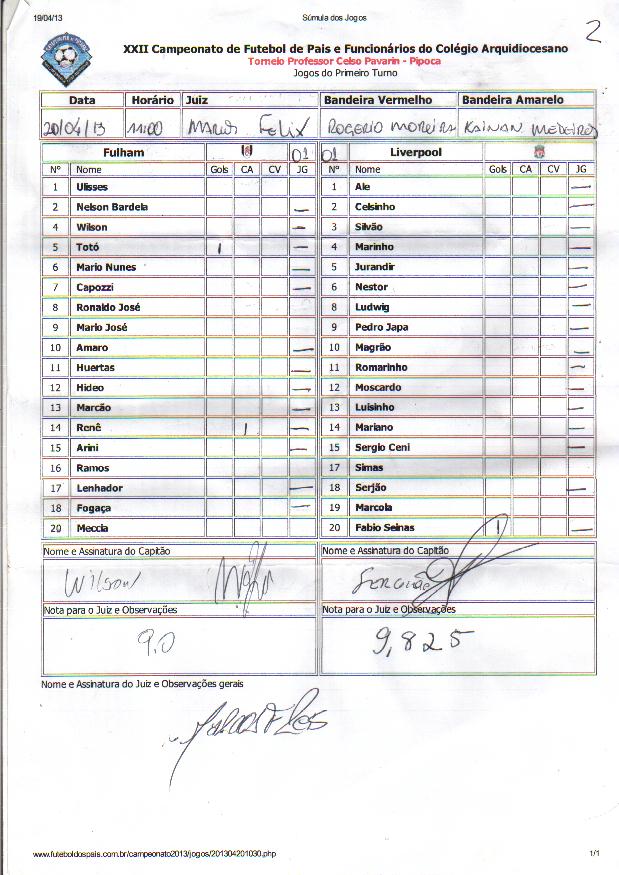 19/04/13 Súmula dos Jogos
2
XXII Campeonato de Futebol de Pais e Funcionários do Colégio Arquidiocesano
Torneio Professor Celso Pavarin - Pipoca
Jogos do Primeiro Turno
Data Horário Juiz Bandeira Vermelho Bandeira Amarelo
20/04/13 11:00 Felix ROGERIO MOREIRA KAINAN MEDEIROS
Fulham 01 01 Liverpool
Nº Nome Gols CA CV JG Nº Nome Gols CA CV JG
1 Ulisses 1 Ale —
2 Nelson Bardela — 2 Celsinho —
4 Wilson — 3 Silvão —
5 Totó 1 — 4 Marinho —
6 Mario Nunes — 5 Jurandir —
7 Capozzi — 6 Nestor —
8 Ronaldo José 8 Ludwig —
9 Mario José 9 Pedro Japa —
10 Amaro — 10 Magrão —
11 Huertas — 11 Romarinho —
12 Hideo — 12 Moscardo —
13 Marcão — 13 Luisinho —
14 Renê 1 — 14 Mariano —
15 Arini — 15 Sergio Ceni —
16 Ramos 17 Simas
17 Lenhador — 18 Serjão —
18 Fogaça — 19 Marcola
20 Meccia 20 Fabio Seinas 1 —
Nome e Assinatura do Capitão Nome e Assinatura do Capitão
Wilson
Nota para o Juiz e Observações Nota para o Juiz e Observações
9.0 9,825
Nome e Assinatura do Juiz e Observações gerais
www.futeboldospais.com.br/campeonato2013/jogos/201304201030.php 1/1